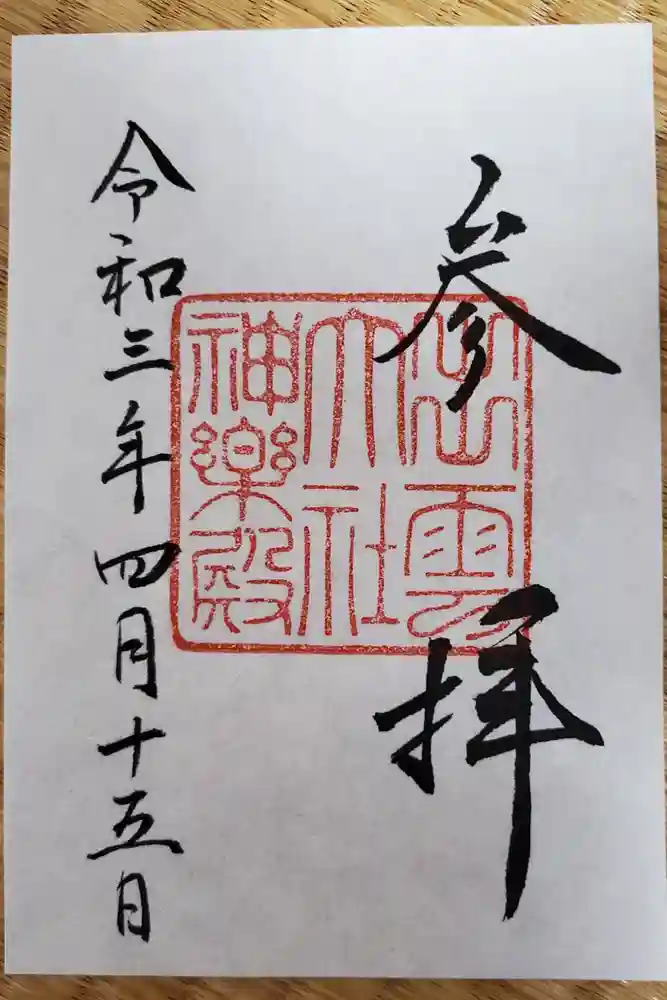 参拝
出雲
大社
神樂殿
令和三年四月十五日